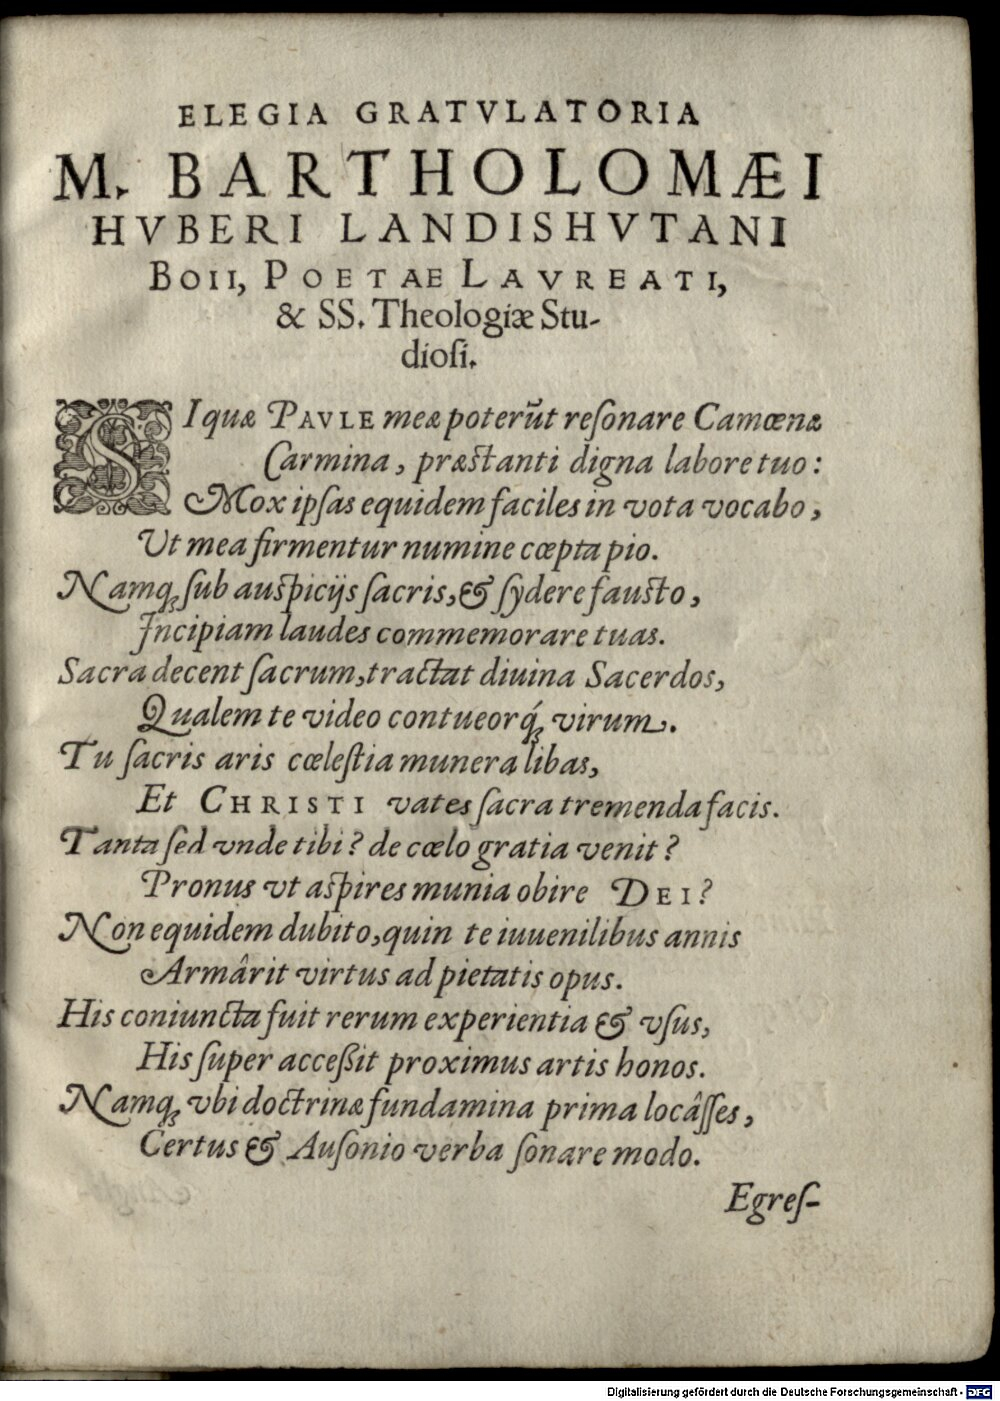 ELEGIA GRATVLATORIA
M. BARTHOLOMÆI
HVBERI LANDISHVTANI
BOII, POETAE LAVREATI,
& SS. Theologiæ Stu-
dioſi.
SI quæ PAVLE meæ poterũt reſonare Camœnæ
Carmina, præſtanti digna labore tuo:
Mox ipſas equidem faciles in vota vocabo,
Ut mea firmentur numine cœpta pio.
Namq; ſub auſpicijs ſacris, & ſydere fauſto,
Incipiam laudes commemorare tuas.
Sacra decent ſacrum, tractat diuina Sacerdos,
Qualem te video contueorq́; virum.
Tu ſacris aris cœleſtia munera libas,
Et CHRISTI vates ſacra tremenda facis.
Tanta ſed vnde tibi? de cœlo gratia venit?
Pronus vt aſpires munia obire DEI?
Non equidem dubito, quin te iuuenilibus annis
Armârit virtus ad pietatis opus.
His coniuncta fuit rerum experientia & vſus,
His ſuper acceßit proximus artis honos.
Namq; vbi doctrinæ fundamina prima locâſſes,
Certus & Auſonio verba ſonare modo.
Egreſ-
Digitalisierung gefördert durch die Deutsche Forschungsgemeinschaft - DFG